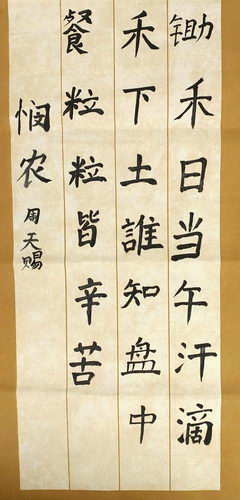 锄禾日当午汗滴
禾下土誰知盘中
餐粒粒皆辛苦
悯农 周天赐